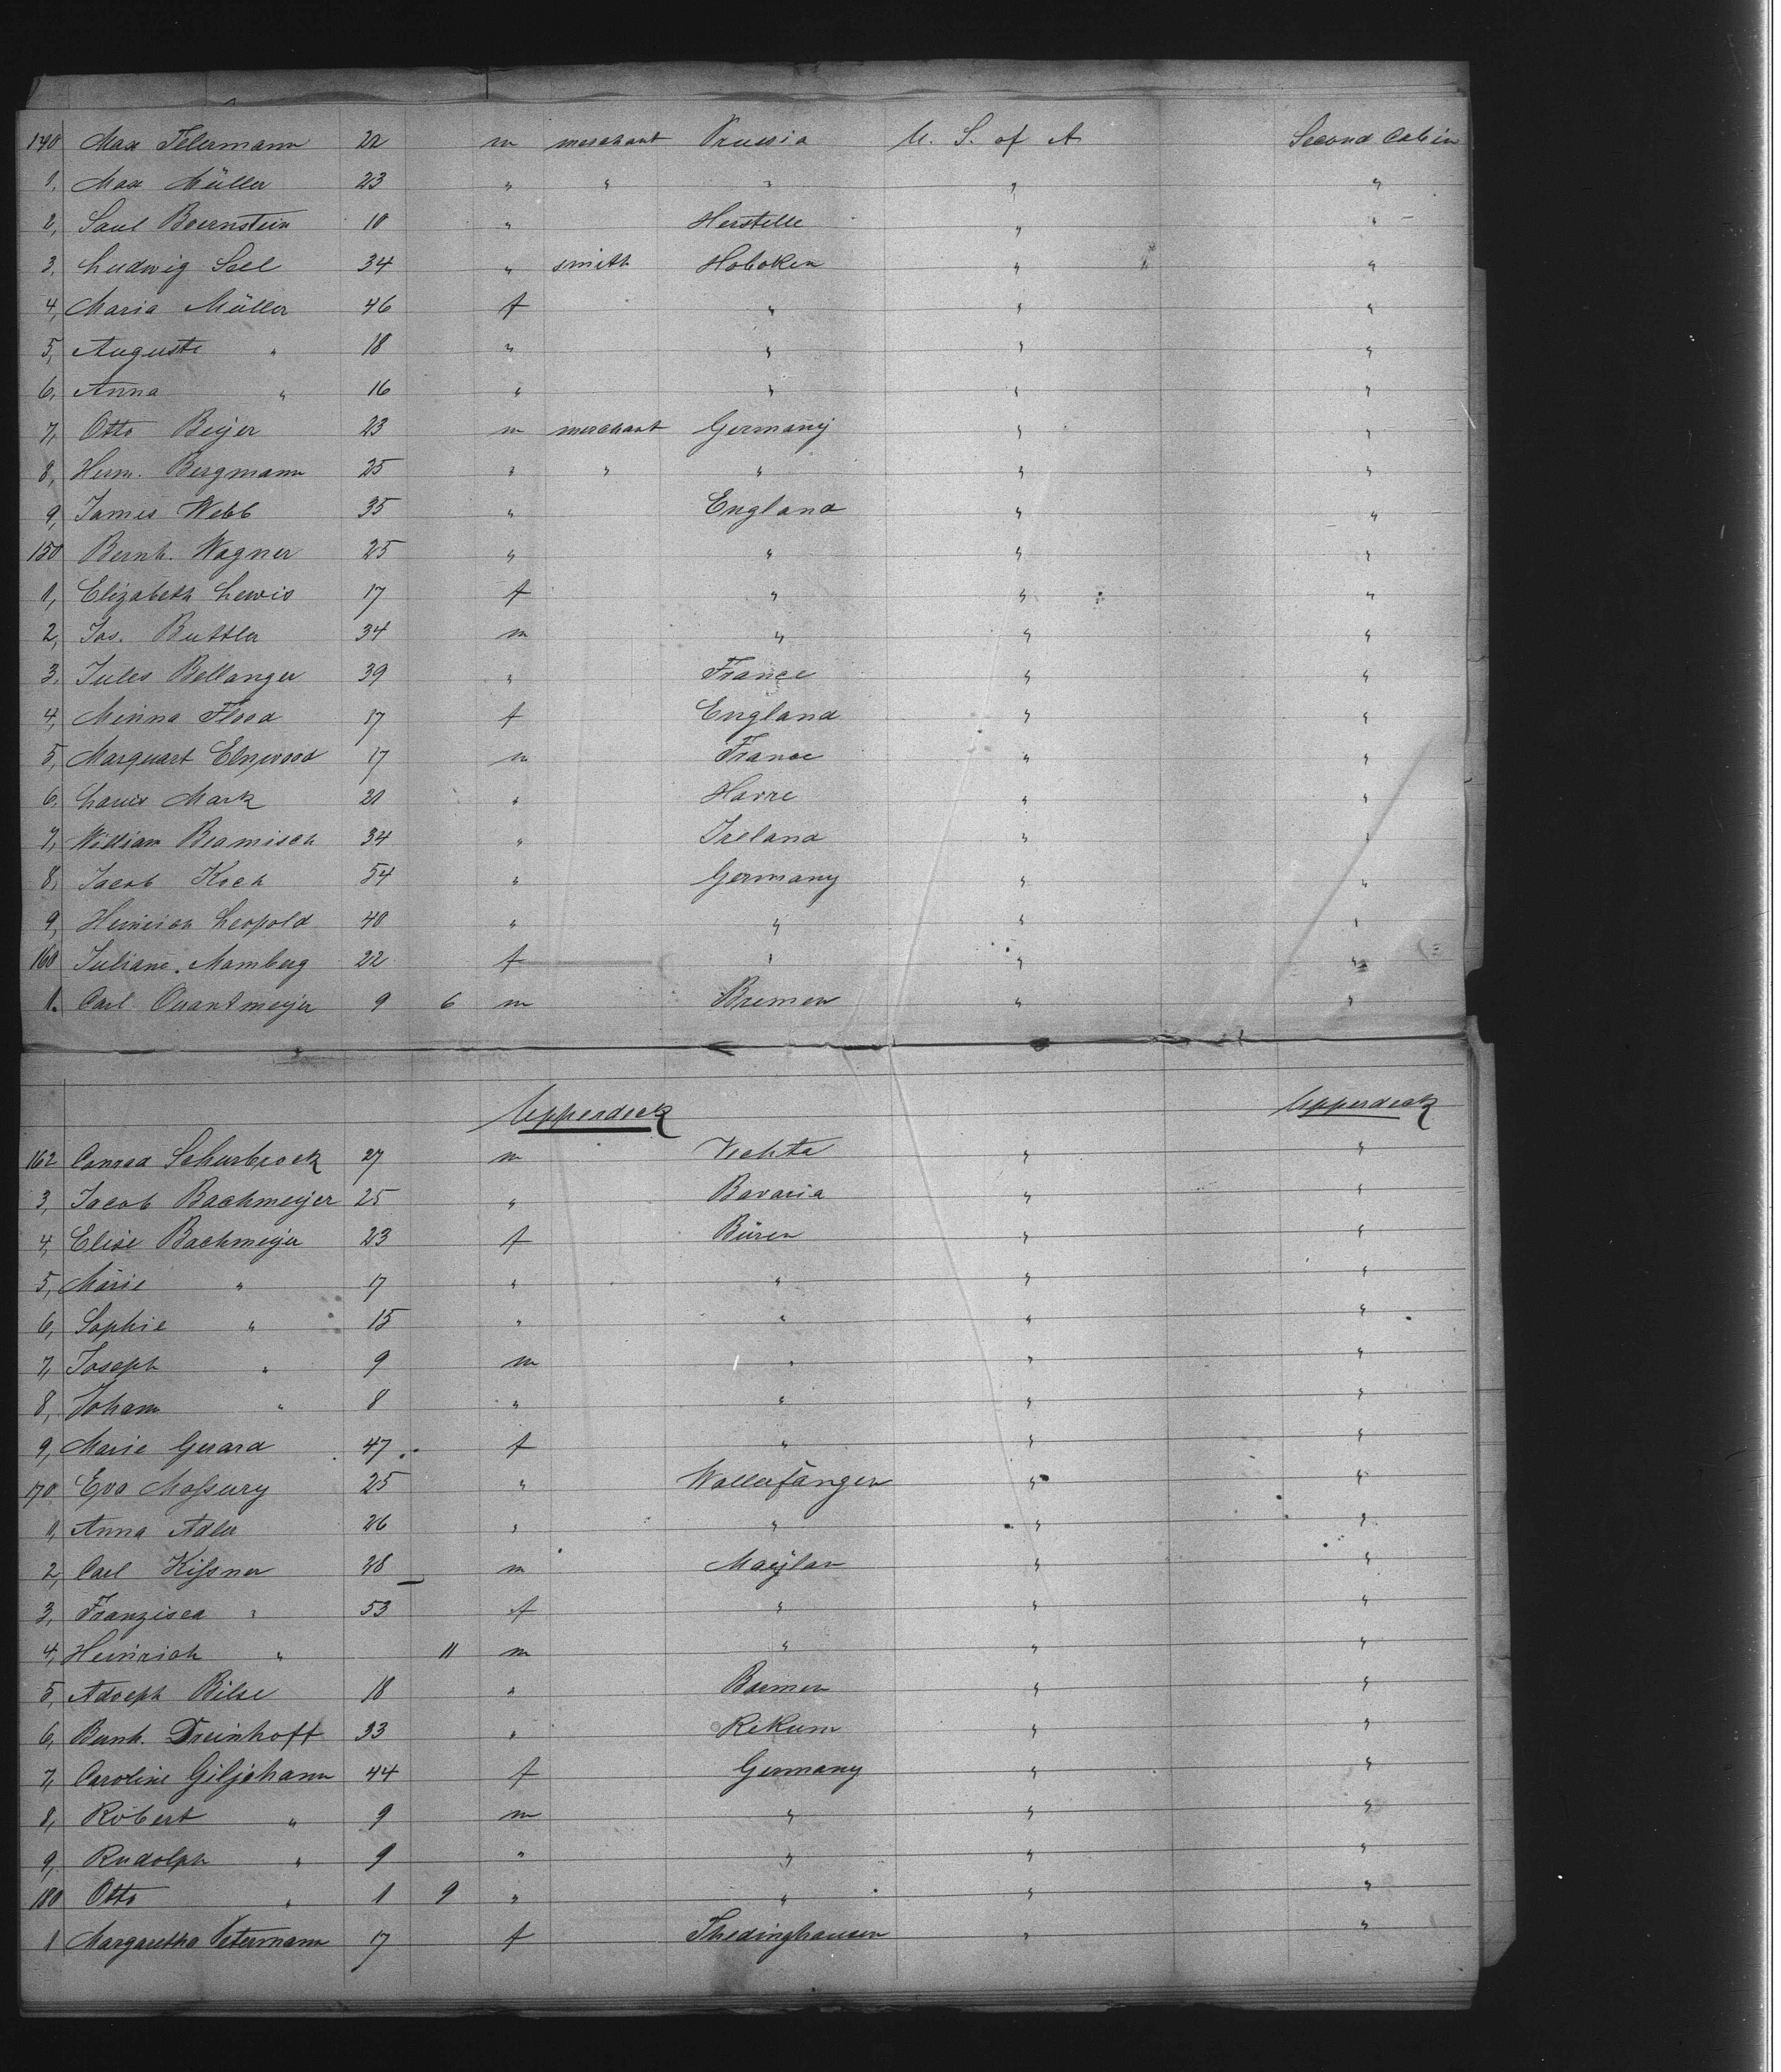 140 Max Telermann 22 m merchant Prussia U. S. of A Second Cabin
1, Max Müller 23 " " " " "
2, Saul Boernstein 10 " Herstelle " "
3, Ludwig Seel 34 " smith Hoboken " "
4, Maria Müller 46 f " " "
5, Auguste " 18 " " " "
6, Anna " 16 " " " "
7, Otto Beyer 23 m merchant Germany " "
8, Herm. Bergmann 25 " " " " "
9, James Webb 35 " England " "
150 Bernh. Wagner 25 " " " "
1, Elizabeth Lewis 17 f " " "
2, Jos. Buttler 34 m " " "
3, Jules Bellanger 39 " France " "
4, Minna Flood 17 f England " "
5, Marquart 17 m France " "
6, Louis Mark 21 " Havre " "
7, William Beamisch 34 " Ireland " "
8, Jacob Koch 54 " Germany " "
9, Heinrich Leopold 40 " " " "
160 Juliane Mamberg 22 f " " "
1. Carl Quantmeyer 9 6 m Bremen " "
Upperdeck Upperdeck
162 Conrad Schurbrock 27 m Vechta " "
3, Jacob Bachmeyer 25 " Bavaria " "
4, Elise Bachmeyer 23 f Büren " "
5, Marie " 17 " " " "
6, Sophie " 15 " " " "
7, Joseph " 9 m " " "
8, Johann " 8 " " " "
9, Marie Gerard 47 f " " "
170 Eva Massury 25 " Wallerfangen " "
1, Anna Adler 26 " " " "
2, Carl Kissner 48 m " "
3, Franzisca " 53 f " " "
4, Heinrich " 11 m " " "
5, Adolph Bilse 18 " Barmen " "
6, Bernh. Dreinhoff 33 " Rekum " "
7, Caroline Giljohann 44 f Germany " "
8, Robert " 9 m " " "
9, Rudolph " 9 " " " "
180 Otto " 1 9 " " " "
1 Margaretha Petermann 17 f Thedinghausen " "